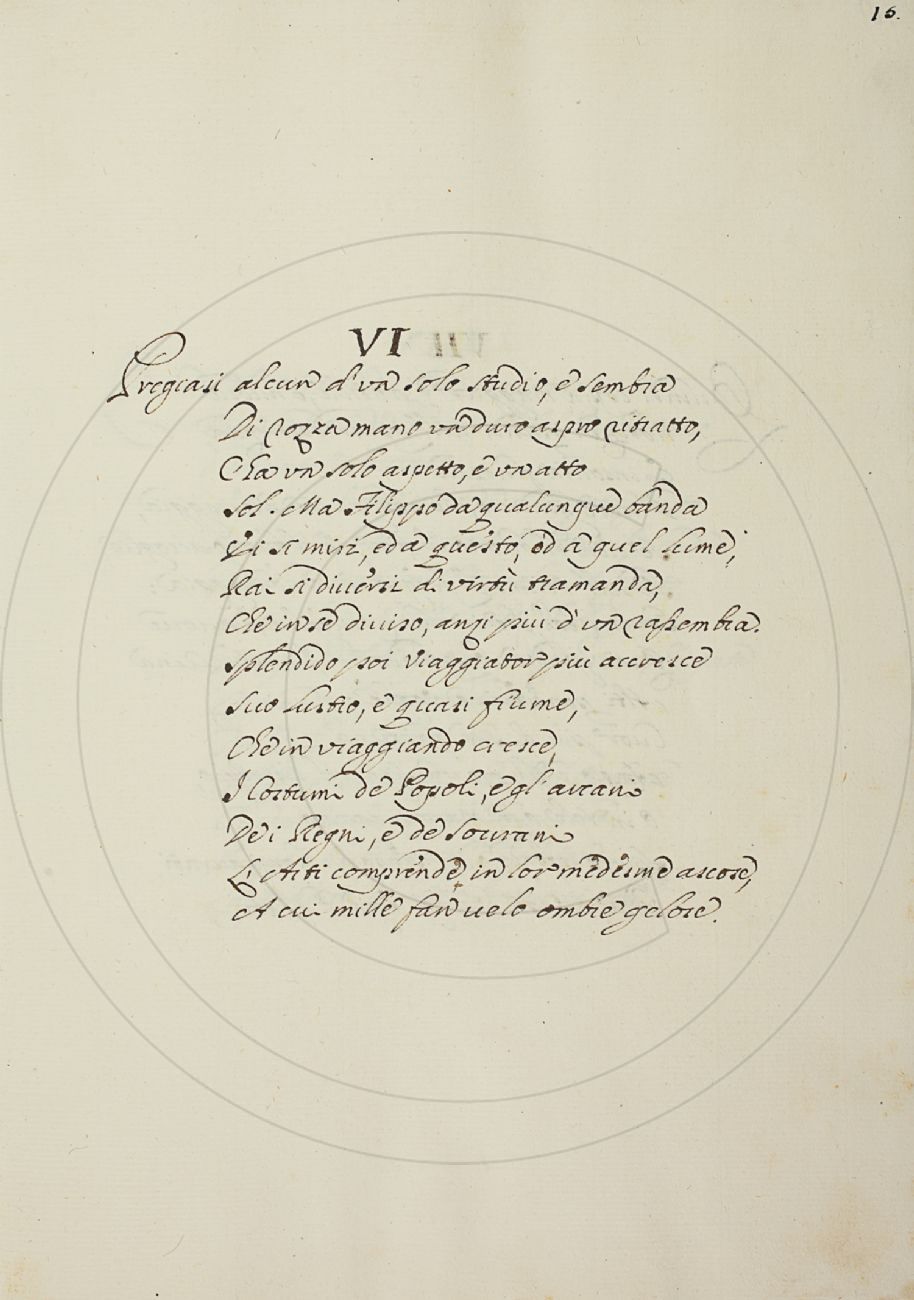 16.
VI
Pregiasi alcun d'un solo studio, e sembra
Di rozza mano un duro aspro ritratto,
C'ha un solo aspetto, e un atto
Sol. Ma Filippo da qualunque banda
Ei si miri, ed a questo, od a quel lume,
Rai si diversi di virtù tramanda,
Che in se diviso, anzi più d'un rassembra.
Splendido poi Viaggiator più accresce
Suo lustro, e quasi fiume,
Che in viaggiando cresce,
I Costumi de Popoli, e gl'arcani
De i Regni, e de Sourani
L'Arti comprende in lor medesme ascose,
A cui mille fan velo ombre gelose.